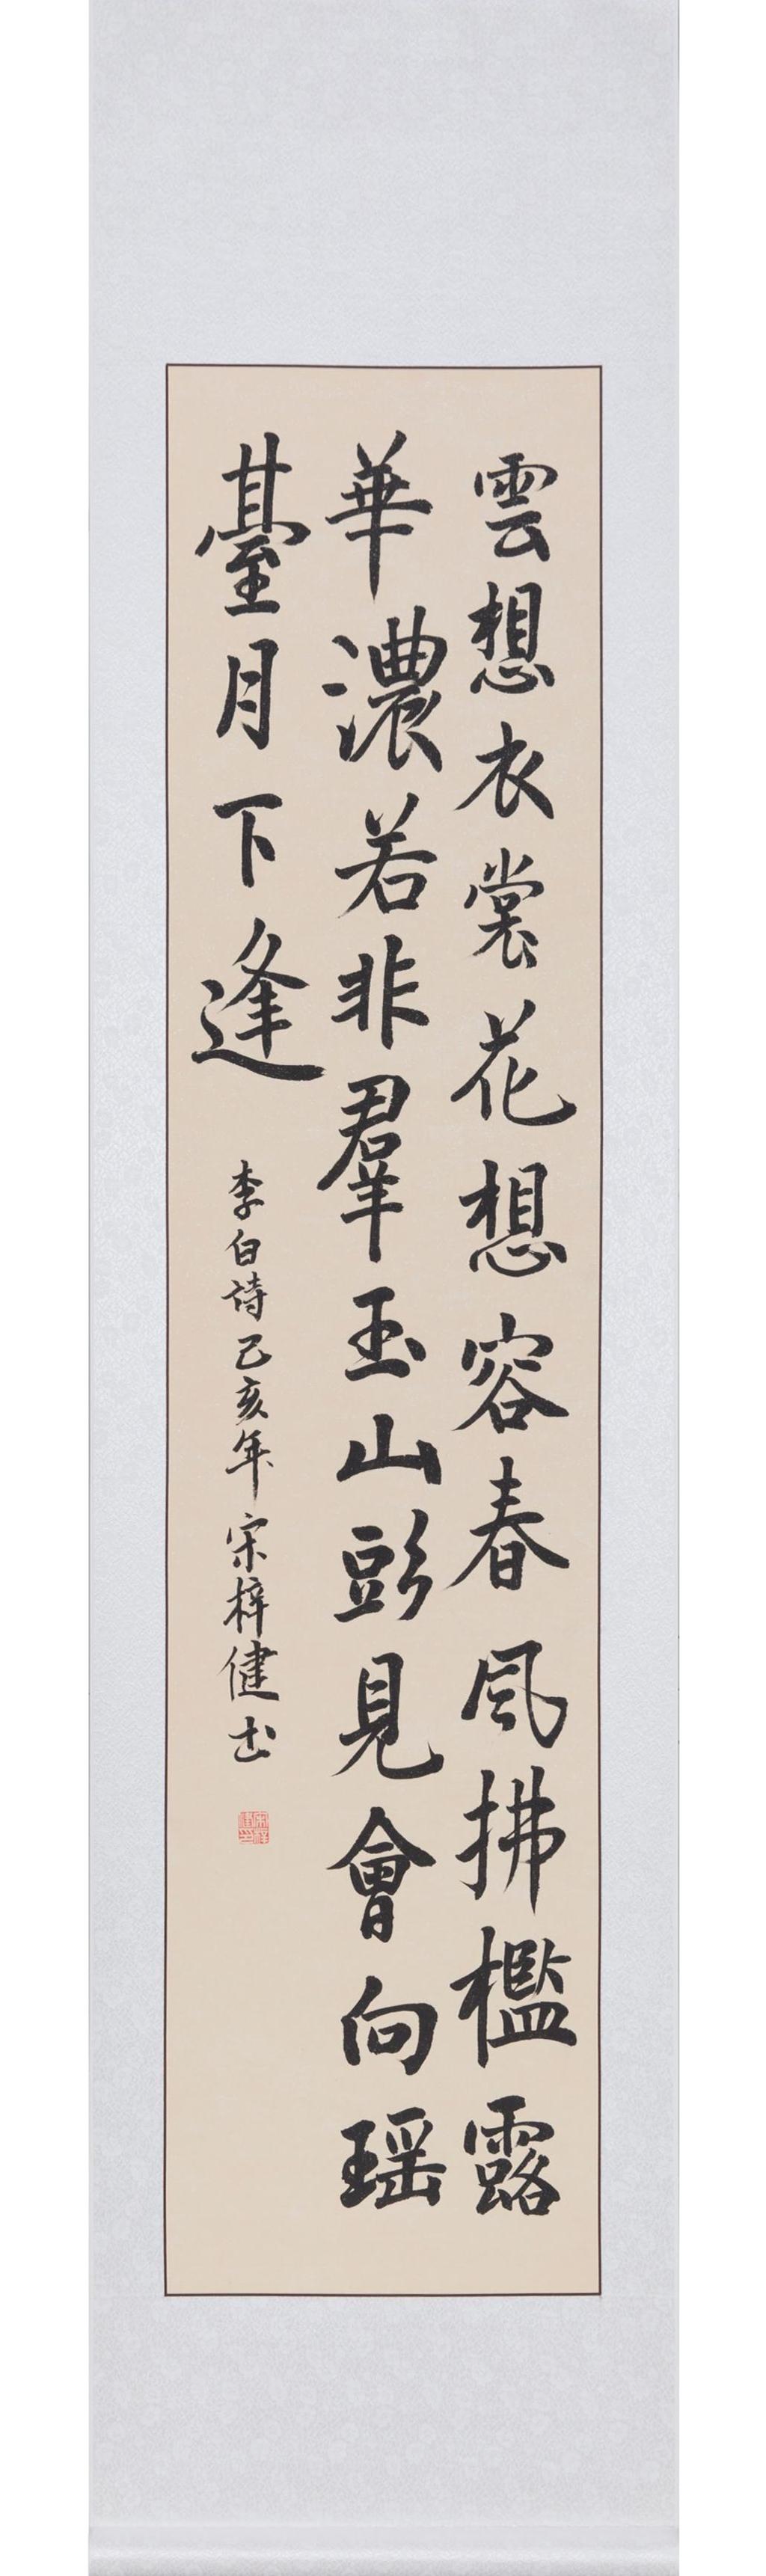 雲想衣裳花想容春風拂檻露
華濃若非羣玉山頭見會向瑶
臺月下逢
李白詩己亥年宋梓健书